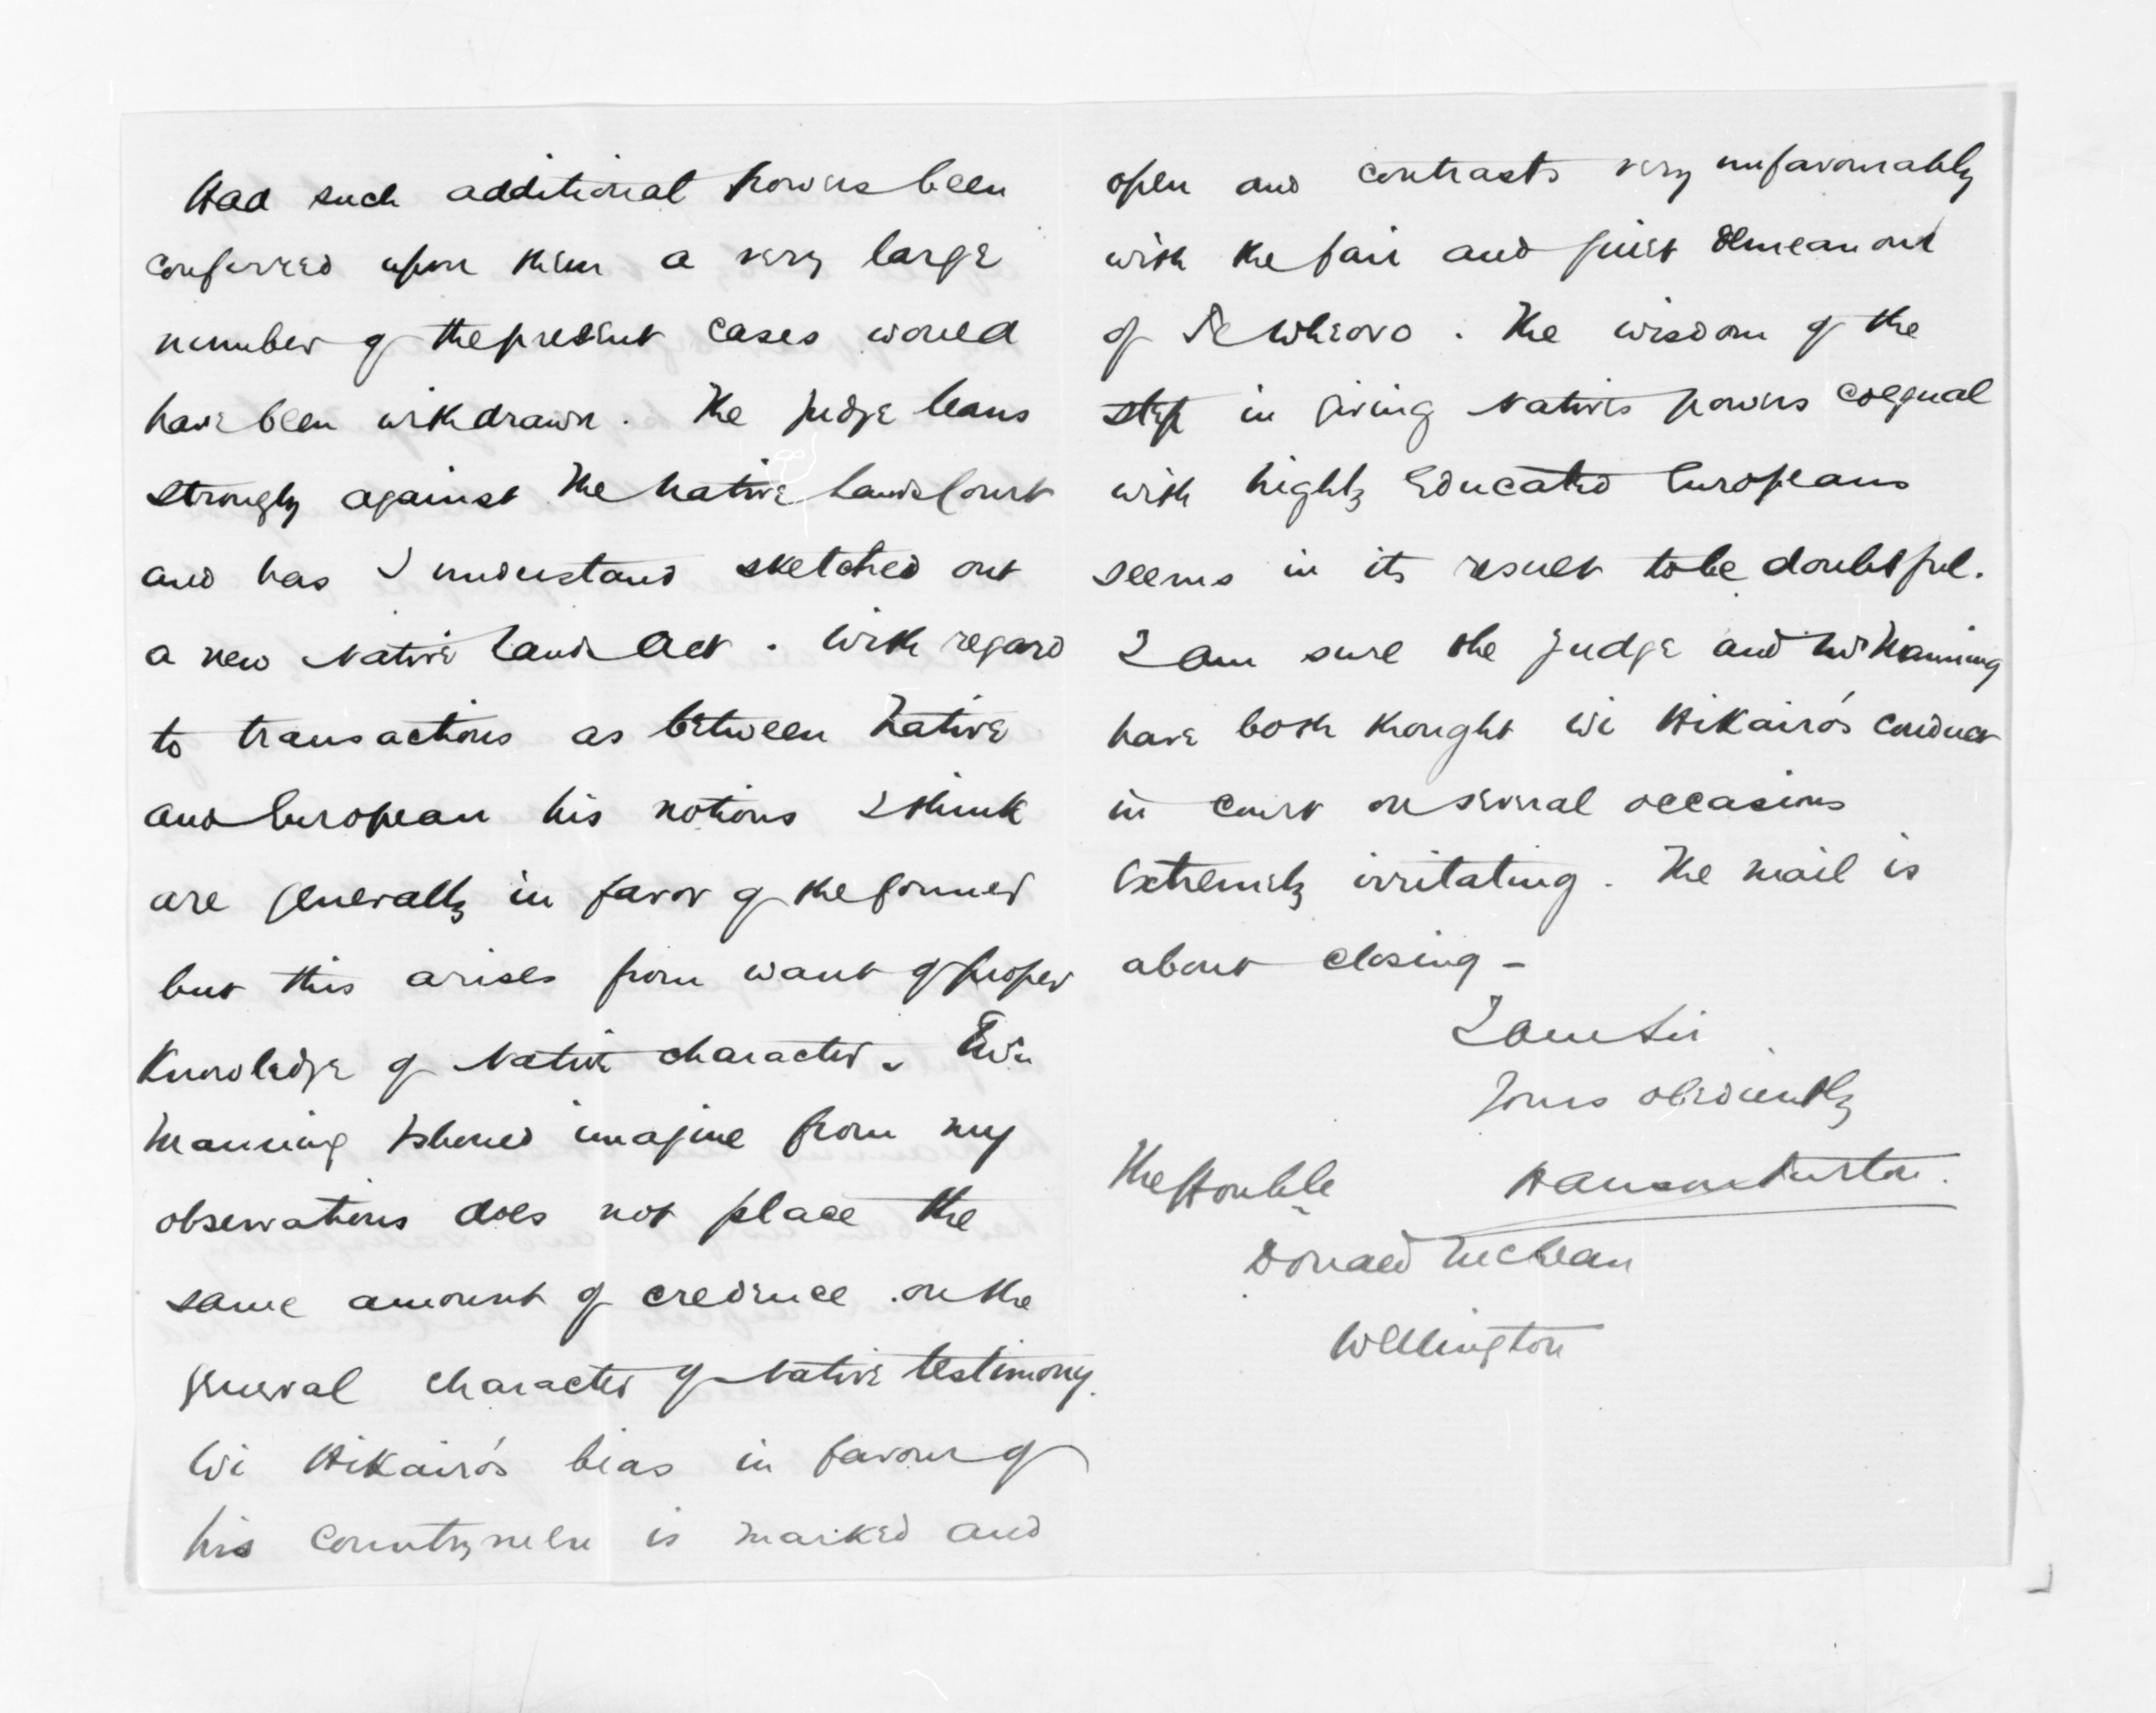 Had such additional powers been
conferred upon them a very large
number of the present cases would
have been withdrawn. The judge leans
strongly against the Native Lands Court
and has I understand sketched out
a new Native Lands Act. With regard
to transactions as between Native
and European his notions I think
are generally in favor of the former
but this arises from want of proper
Knowledge of Native character. Even
Manning I should imagine from my
observations does not place the
same amount of credence on the
general character of Native testimony.
Wi Hikairo's bias in favour of
his countrymen is marked and
open and contrasts very unfavourably
with the fair and quiet demeanour
of Te Wheoro. The wisdom of the
step in giving Natives powers coequal
with highly Educated Europeans
seems in its result to be doubtful.
I am sure the Judge and Mr Manning
have both thought Wi Hikairo's conduct
in court on several occasions
extremely irritating. The mail is
about closing -
I am Sir
Yours obediently
Hanson Turton.
The Honble
Donald McLean
Wellington